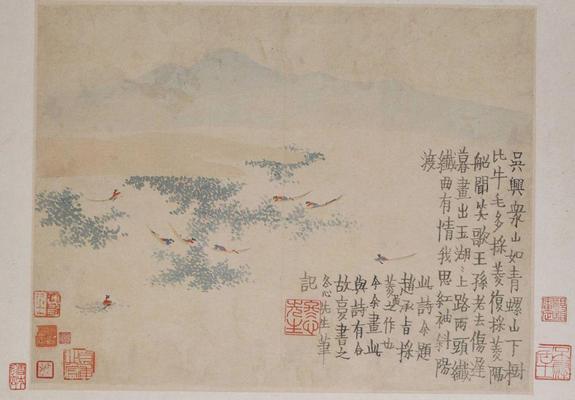 吳興眾山如青螺山下樹
比牛毛多採菱復採菱隔
船聞笑歌王孫老去傷遲
暮畫出玉湖〻上路兩頭纖
纖曲有情我思紅袖斜陽
渡
此詩余題
趙承旨採
菱之作也
今余畫此
與詩有合
故書之
冬心先生筆
記
冬心先生